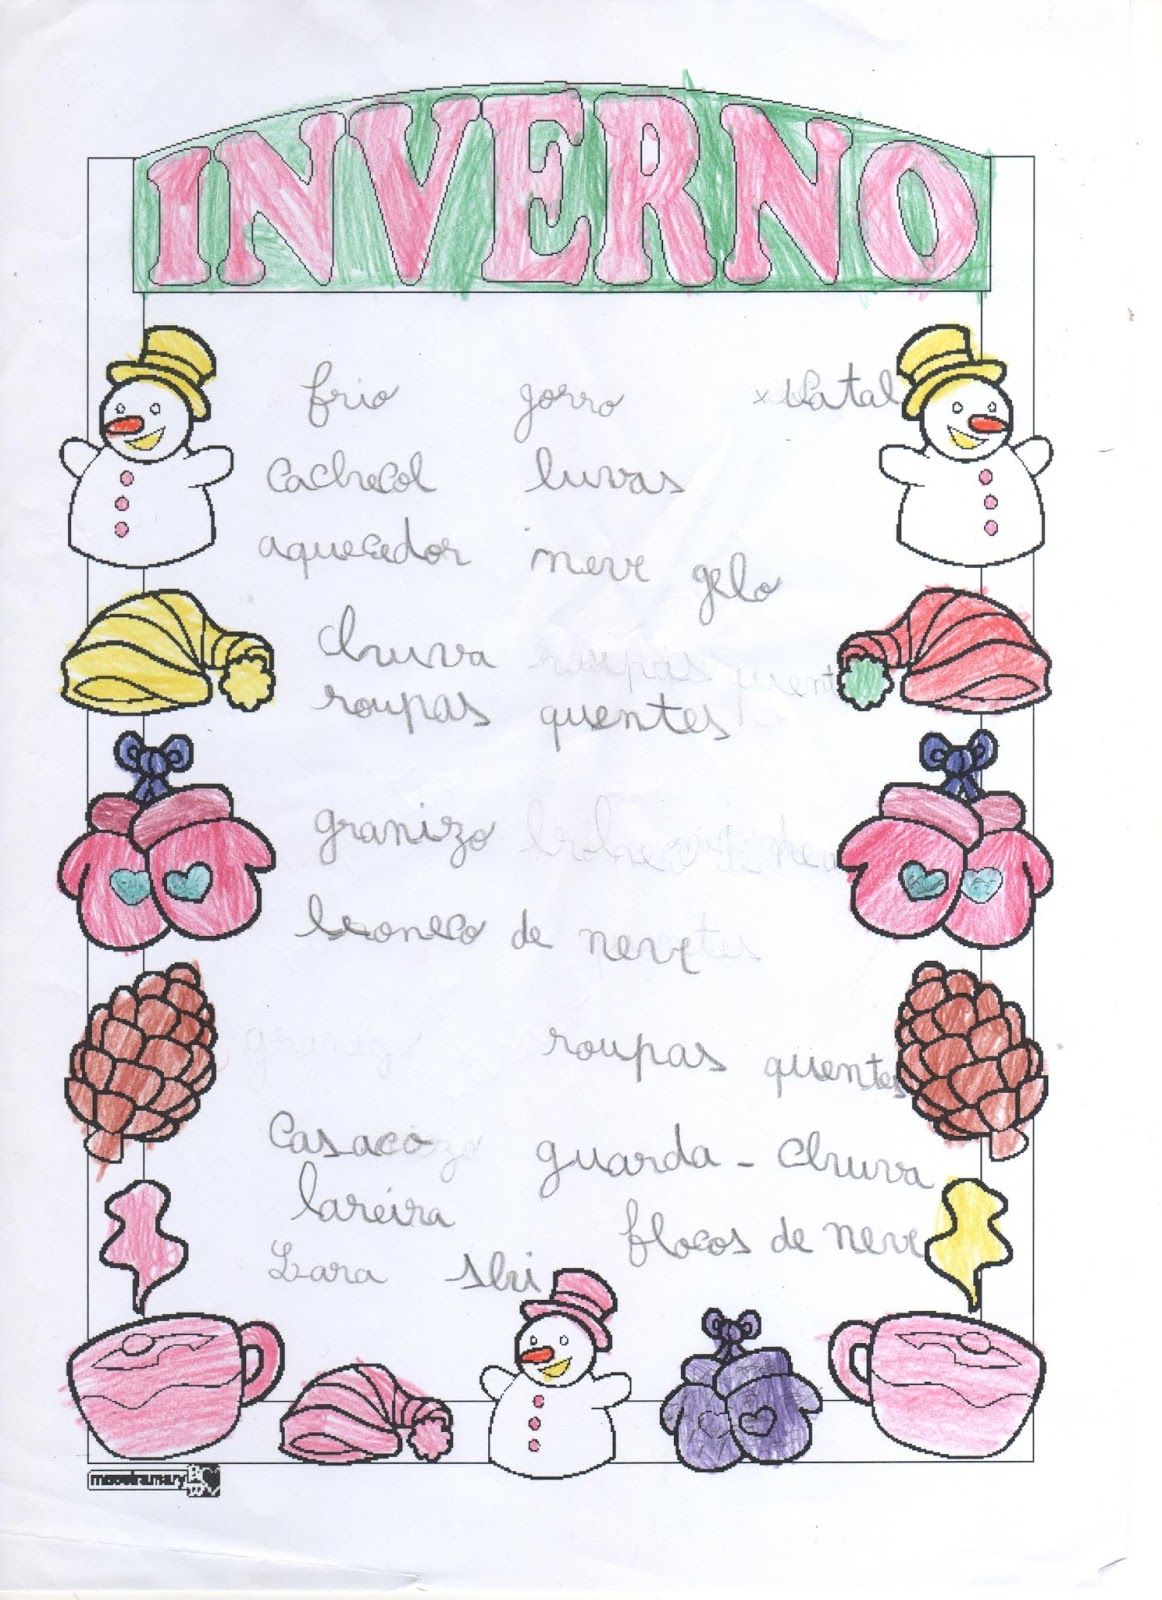 INVERNO
frio gorro Natal
cachecol luvas
aquecedor neve gelo
chuva roupas quent
roupas quentes
granizo
boneco de neve
granizo roupas quentes
casaco guarda-chuva
lareira flocos de neve
Lara ski
maestramary